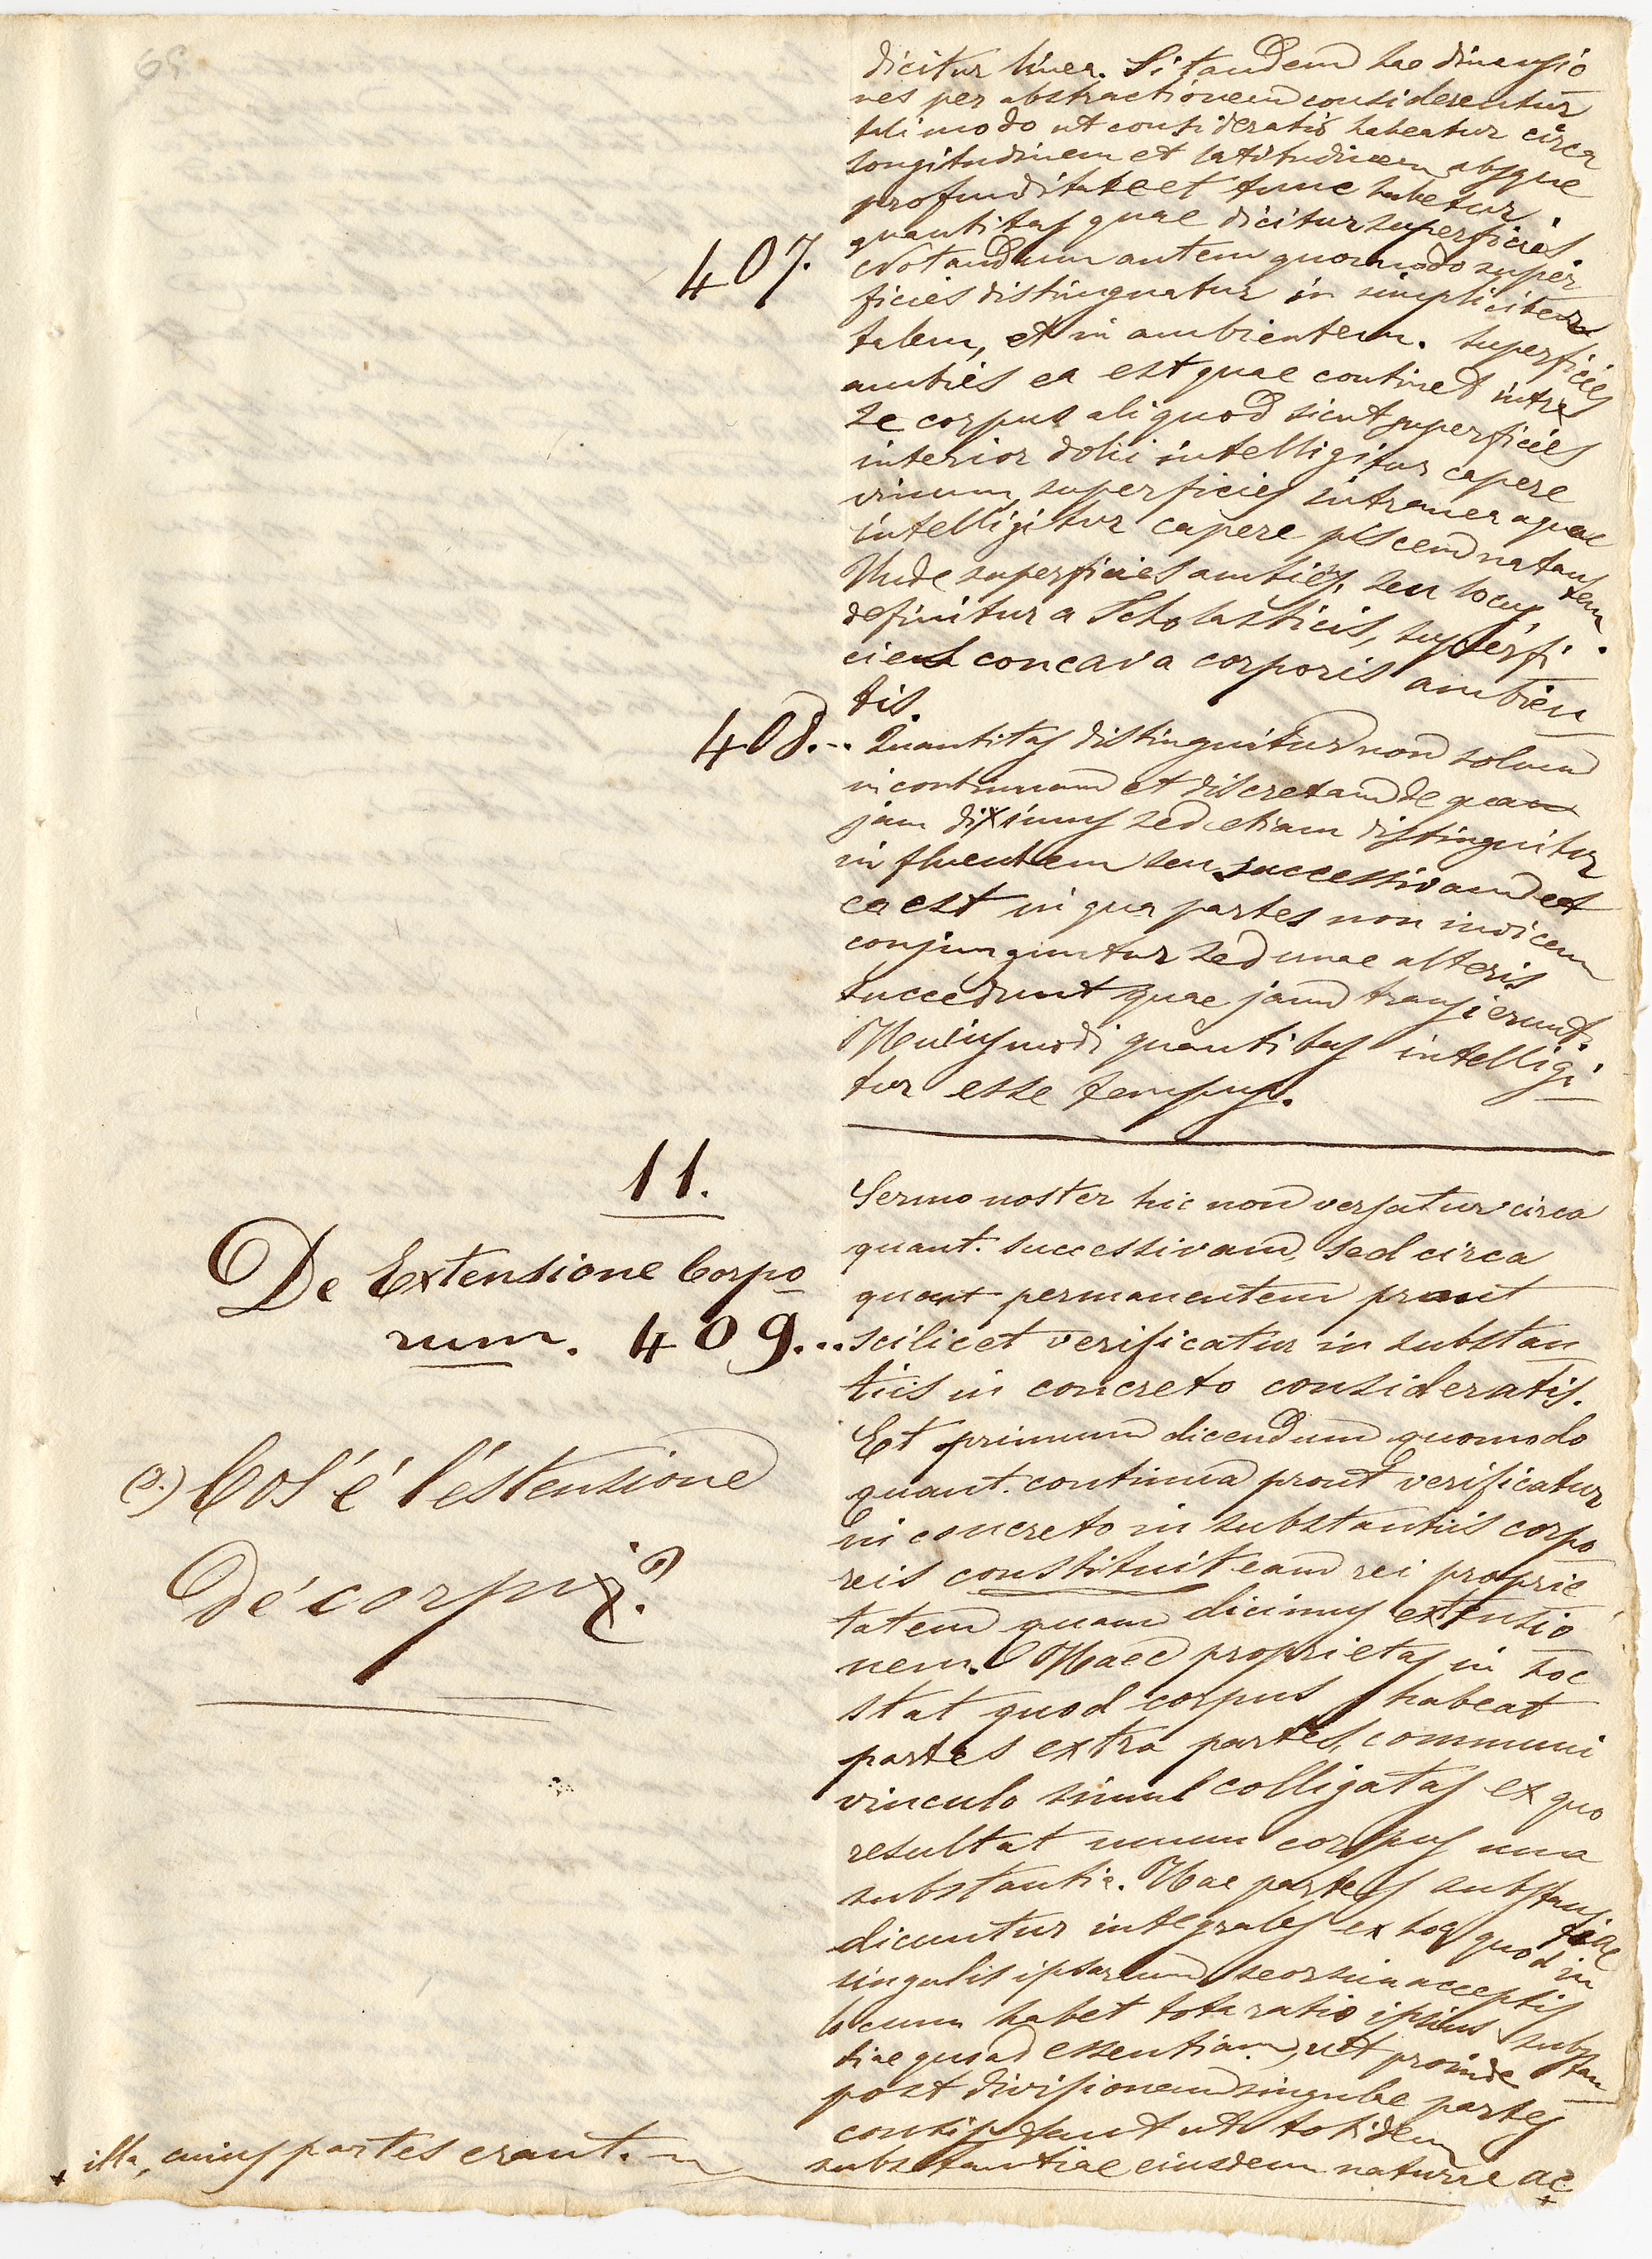 59
dicitur linea. Si tandem hae dimensio
nes per abstractionem considerentur
tali modo ut consideratio habeatur circa
longitudinem et latitudinem absque
profunditate et tunc habetur
quantitas quae dicitur superficies.
407. Notandum autem quomodo super
ficies distinguatur in simpliciter
talem, et in ambientem. Superficies
ambiēs ea est quae continet intra
se corpus aliquod sicut superficies
interior dolii intelligitur capere
vinum, superficies intranea aquae
intelligitur capere piscem natan
tem.
Unde superficies ambiēs, seu locus,
definitur a Scholasticis, superfi
cies concava corporis ambien
tis.
408... Quantitas distinguitur non solum
in continuam et discretam de qua
jam diximus sed etiam distinguitur
in fluentem seu successivam et
ea est in qua partes non invicem
conjunguntur sed unae alteris
succedunt quae jam transierunt.
Huiusmodi quantitas intelligi
tur esse tempus.
11.
De Extensione Corpo
rum. 409...
Sermo noster hic non versatur circa
quant. successivam, sed circa
quant permanentem prout
scilicet verificatur in substan
tiis in concreto consideratis.
Et primum dicendum quomodo
quant. continua prout verificatur
in concreto in substantiis corpo
reis constituit eam rei proprie
tatem quam dicimus extensio
nem. Haec proprietas in hoc
stat quod corpus habeat
partes extra partes, communi
vinculo simul colligatas ex quo
resultat unum corpus una
substantia. Hae partes substan
tiae
dicuntur integrales ex hoc quod in
singulis ipsarum seorsim acceptis
locum habet tota ratio ipsius substan
tiae quoad essentiam, ut proinde
post divisionem singulae partes
consistant uti totidem
substantiae eiusdem naturae ac
+
(a.) Cos'é l'éstensione
dé corpi?
+ illa, cuius partes erant.